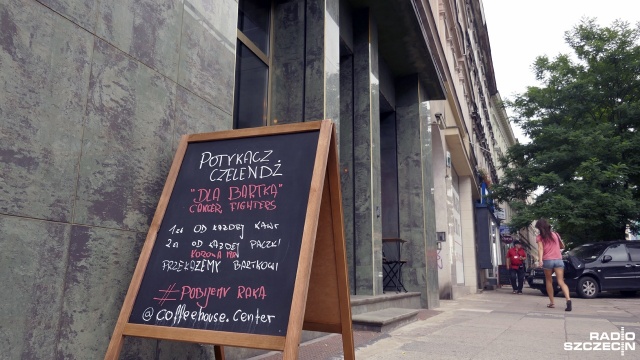 POTYKACZ
CZELENDŻ
"DLA BARTKA"
CANCER FIGHTERS
1zł OD KAŻDEJ KAWY
2zł OD KAŻDEJ PACZKI
PRZEKAŻEMY BARTKOWI
#PODIJEMY RAKA
@coffeehouse.center
RADIO
SZCZECIN